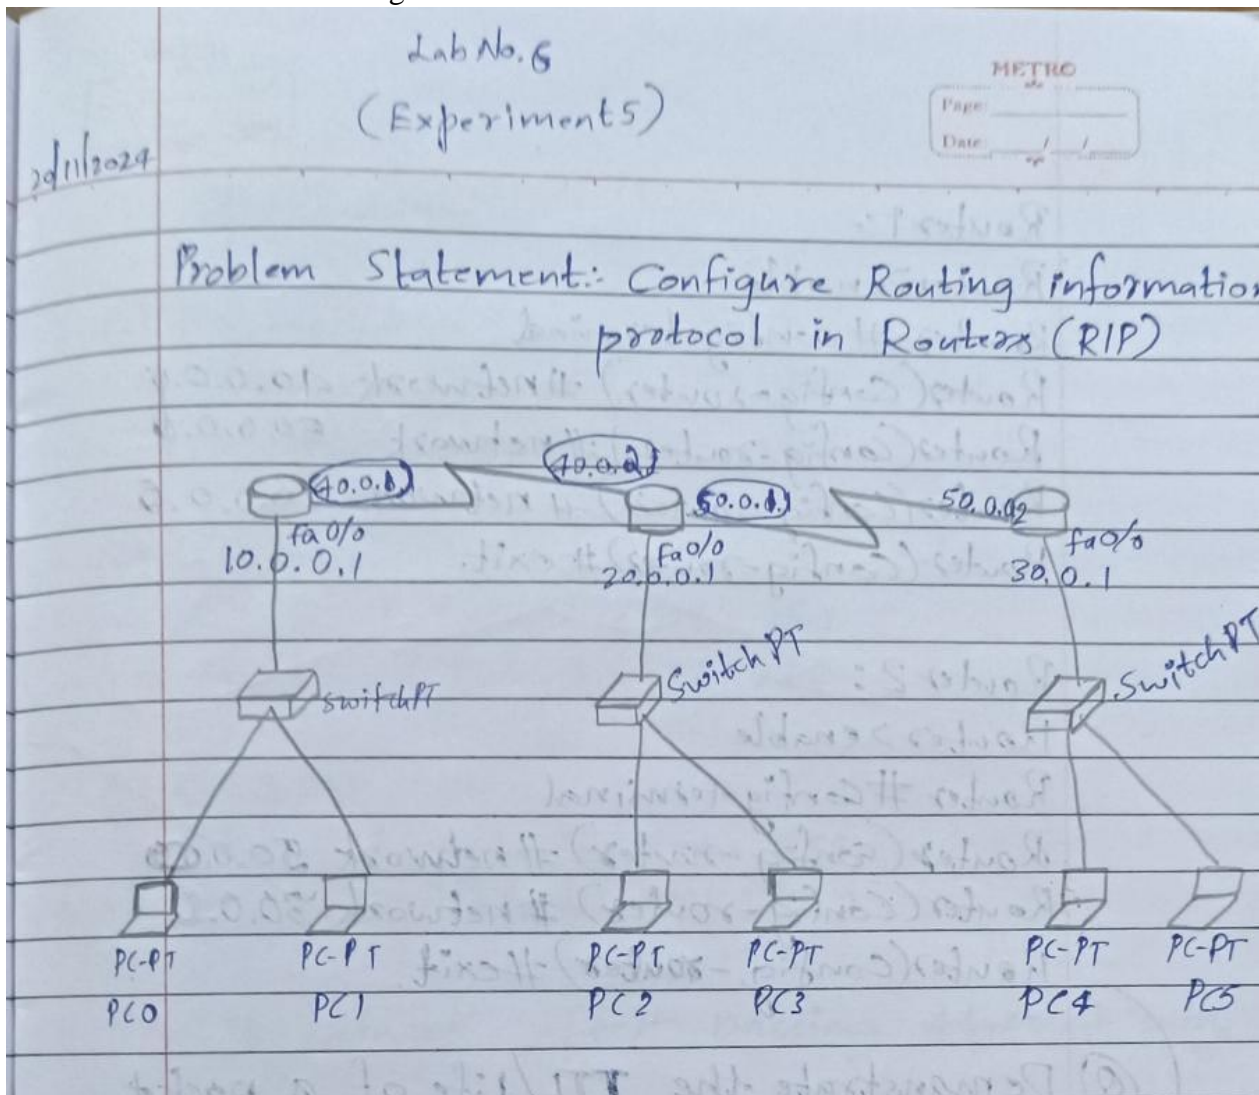 Lab No. 6
(Experiment 5)
METRO
Page:
Date: / /
20/11/2024
Problem Statement:- Configure Routing information
protocol in Routers (RIP)
40.0.0.1
40.0.0.2
50.0.0.1
50.0.0.2
fa0/0
10.0.0.1
fa0/0
20.0.0.1
fa0/0
30.0.1
switchPT
Switch PT
Switch PT
PC-PT PC-PT PC-PT PC-PT PC-PT PC-PT
PC0 PC1 PC2 PC3 PC4 PC5